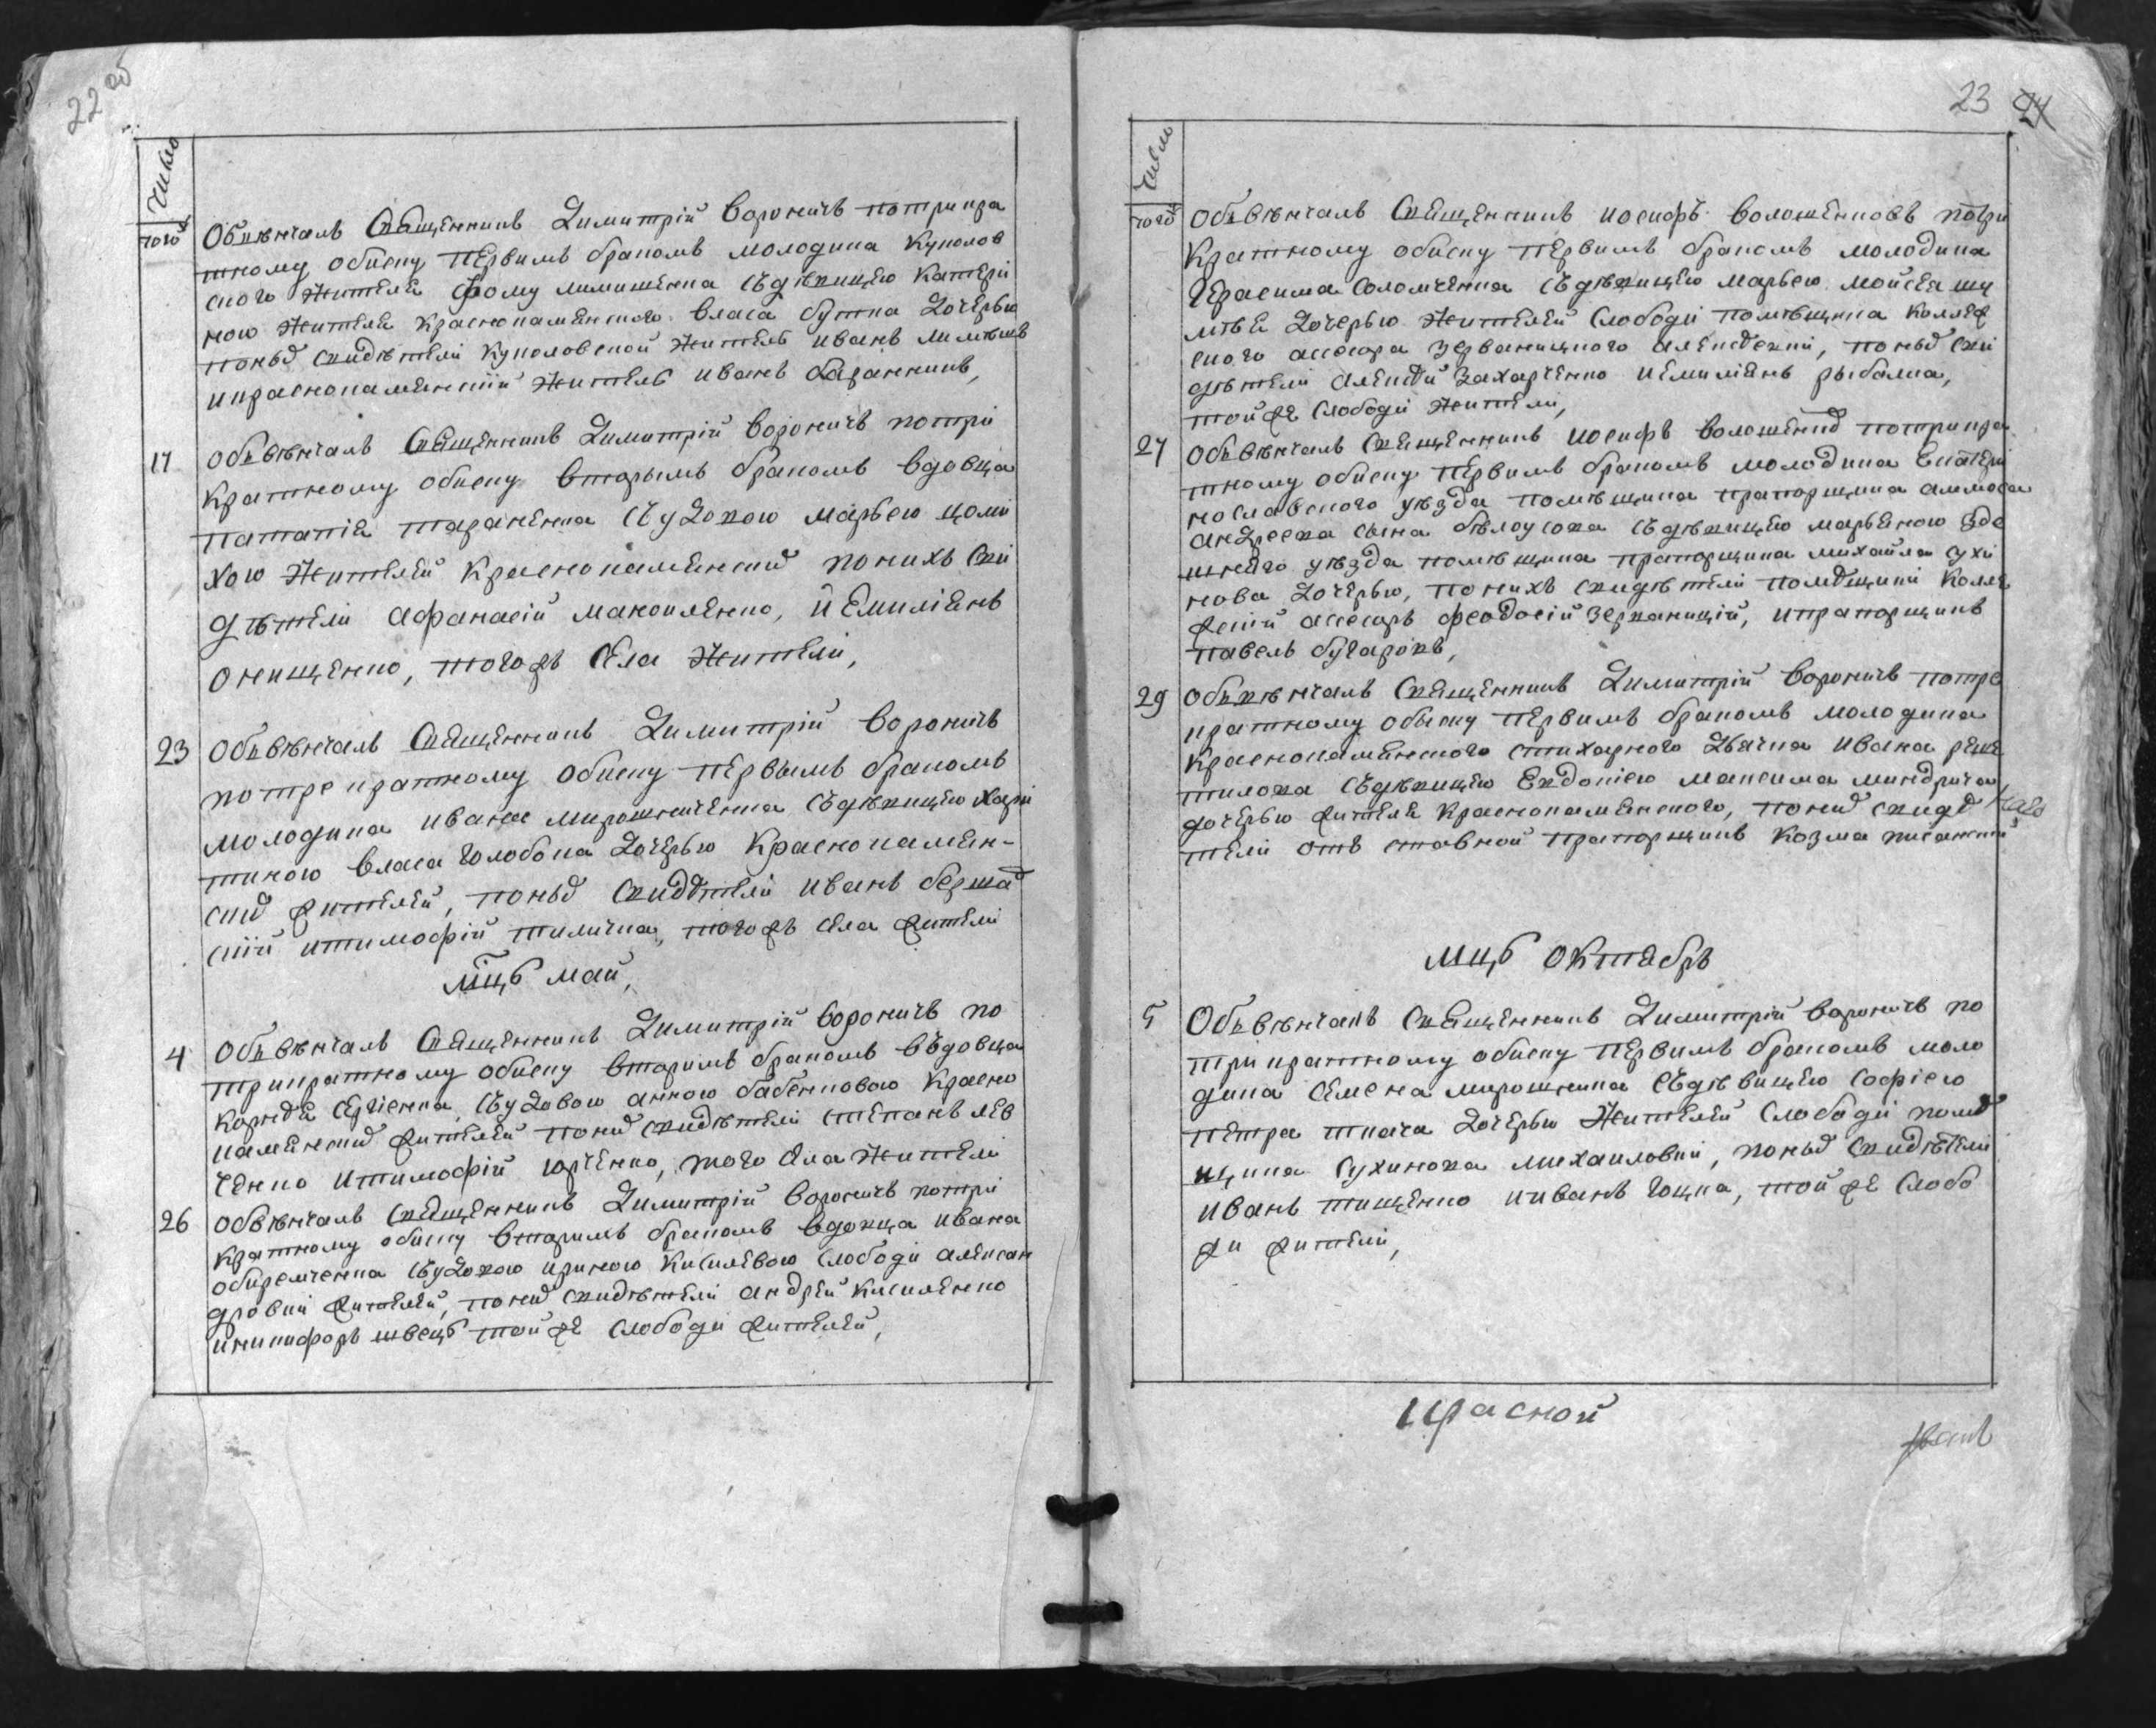 22 об
Число
того
Обвѣнчалъ Священникъ Димитрій Вороничъ потрикра
тному обиску первимъ бракомъ молодика Куполов
ского жителя Фому Климишенка съдѣвицею Катери
ною жителя Краснокаменского Власа бутка дочерью
поныхъ свидѣтели Куполовской житель Иванъ
икраснокаменскій житель Иванъ баранникъ,
17
Обвѣнчалъ Священникъ Димитрій Вороничъ потри
кратному обиску вторымъ бракомъ вдовца
Патапія тараненка съудовою Марьею
хою жителей Краснокаменскихъ понихъ сви
дѣтели Афанасій Маковленко, иЕмиліянъ
Онищенко, тогожъ села жители,
23
Обвѣнчалъ Священникъ Димитрій Вороничъ
потрократному обиску первымъ бракомъ
молодика Ивана Мирошниченка съдѣвицею Хари
тиною Власа Голобока дочерью Краснокамен-
скихъ жителей, поныхъ свидѣтели Иванъ бершад
скій итимофій тиличка, тогожъ села жители
Мцъ май,
4
Обвѣнчалъ Священникъ Димитрій Вороничъ по
трикратному обиску вторимъ бракомъ въдовца
Корнѣя Сергіенка съудовою Анною бабенковою Красно
каменскихъ жителей поних свидѣтели Степанъ лев
ченко итимофій юрченко, того села жители
26
Обвѣнчалъ Священникъ Димитрій Вороничъ потри
кратному обиску вторимъ бракомъ вдовца Ивана
съудовою ириною Киселевою слободи Алексан
дровки жителей, поних свидѣтели Андрей Кисиленко
иникифоръ швецъ тойже слободи жителей,
23 24
Число
того
Обвѣнчалъ Священникъ Иосифъ Волошенковъ потри
кратному обиску первимъ бракомъ молодика
Герасима Соломченка съдѣвицею Марьею Мойсея шу
мѣва дочерью жителей слободи помѣщика Колеж
ского ассесора Зерваницкого Алексѣевки, поныхъ сви
дѣтели Алексѣй Захарченко иЕмиліянъ рыбалка,
тойже слободи жители,
27
Обвѣнчалъ Священникъ Иосифъ Волошенко потрикра
тному обиску первимъ бракомъ молодика Екатери
нославского уѣзда помѣщика прапорщика
Андреева сына бѣлоусова съдѣвицею Марьяною Зде
шнего уѣзда помѣщика прапорщика Михайла Сухи
нова дочерью, понихъ свидѣтели помѣщики Колле
жскій ассесоръ Феодосій Зерваницкій, ипрапорщикъ
Павелъ бугаровъ,
29
Обвѣнчалъ Священникъ Димитрій Вороничъ потро
кратному обыску первимъ бракомъ молодика
Краснокаменского стихарного дьячка Ивана реше
тилова съдѣвицею Евдокіею Максима Миндрича
дочерью жителя Краснокаменского, поних свидѣ
тели отъ ставной прапорщикъ Козма писанкій
Мцъ Октябрь
5
Обвѣнчалъ Священникъ Димитрій Вороничъ по
трикратному обиску первимъ бракомъ моло
дика Семена мирошника съдѣвицею Софіею
Петра ткача дочерью жителей слободи помѣ
щика Сухинова Михаиловки, поныхъ свидѣтели
Иванъ тищенко ииванъ Гоцка, тойже слобо
ди жители,
Красной